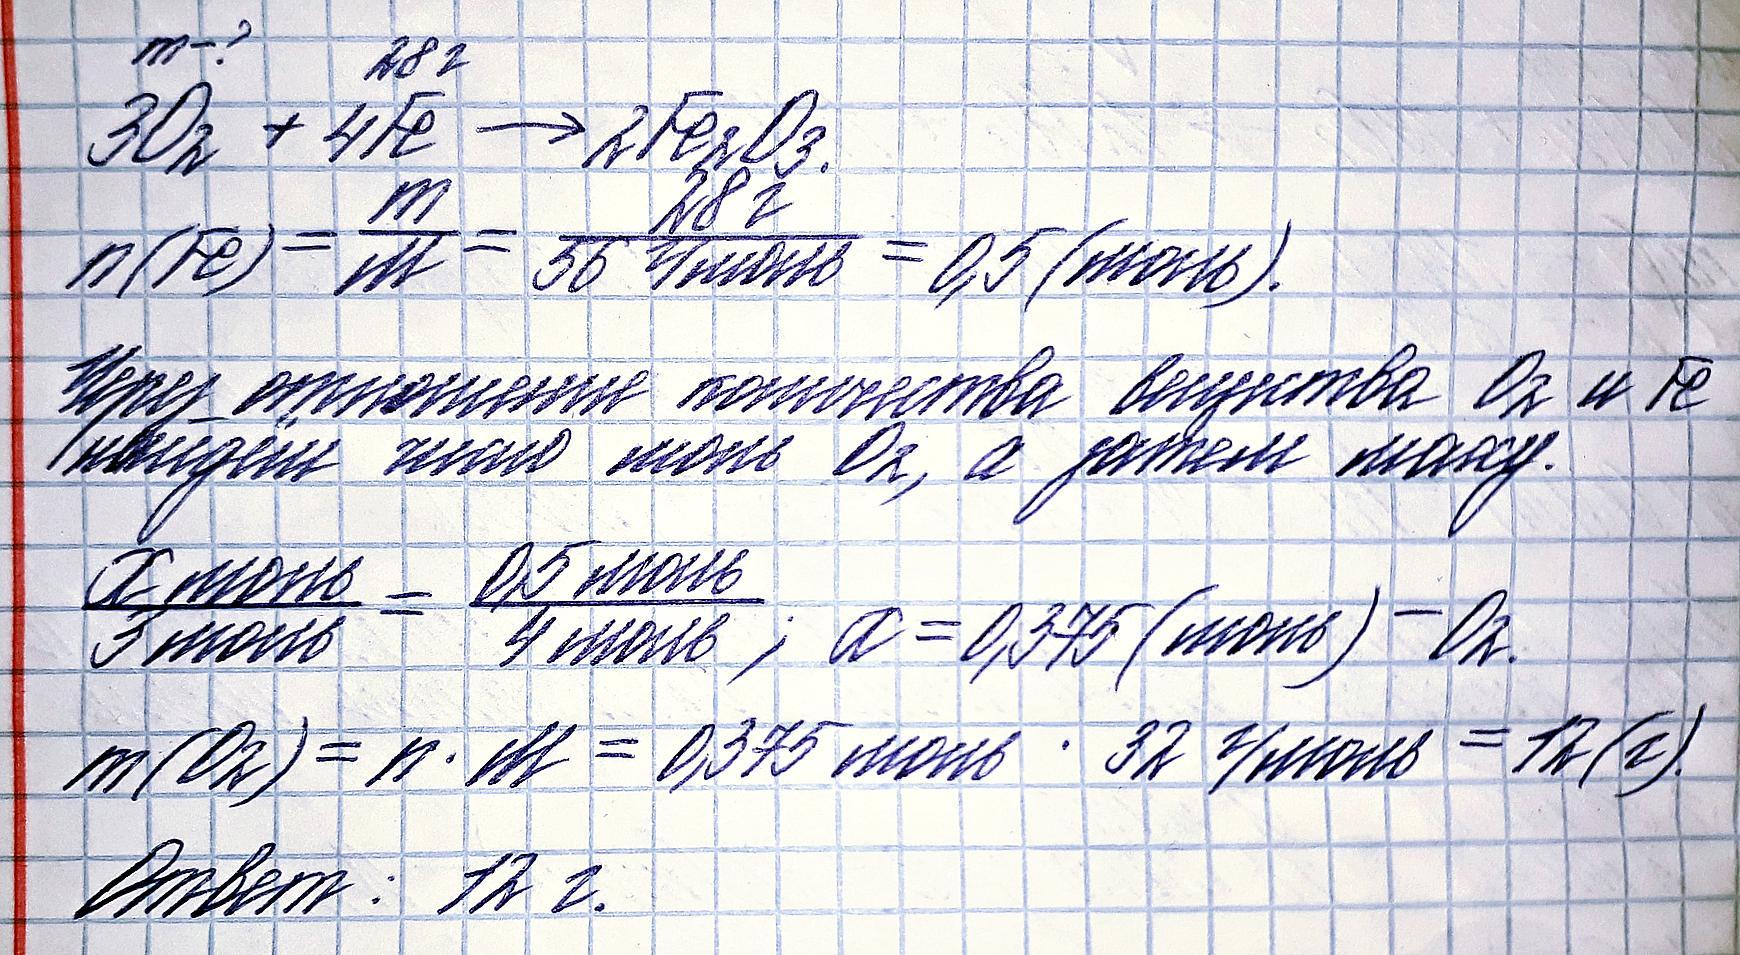 m-? 28 г
3O₂ + 4Fe → 2Fe₂O₃.
n(Fe) = m/M = 28 г/56 г/моль = 0,5 (моль).
Через отношение количества вещества O₂ и Fe
найдём число моль O₂, а затем массу.
x моль/3 моль = 0,5 моль/4 моль ; x = 0,375 (моль) – O₂.
m(O₂) = n · M = 0,375 моль · 32 г/моль = 12 (г).
Ответ : 12 г.